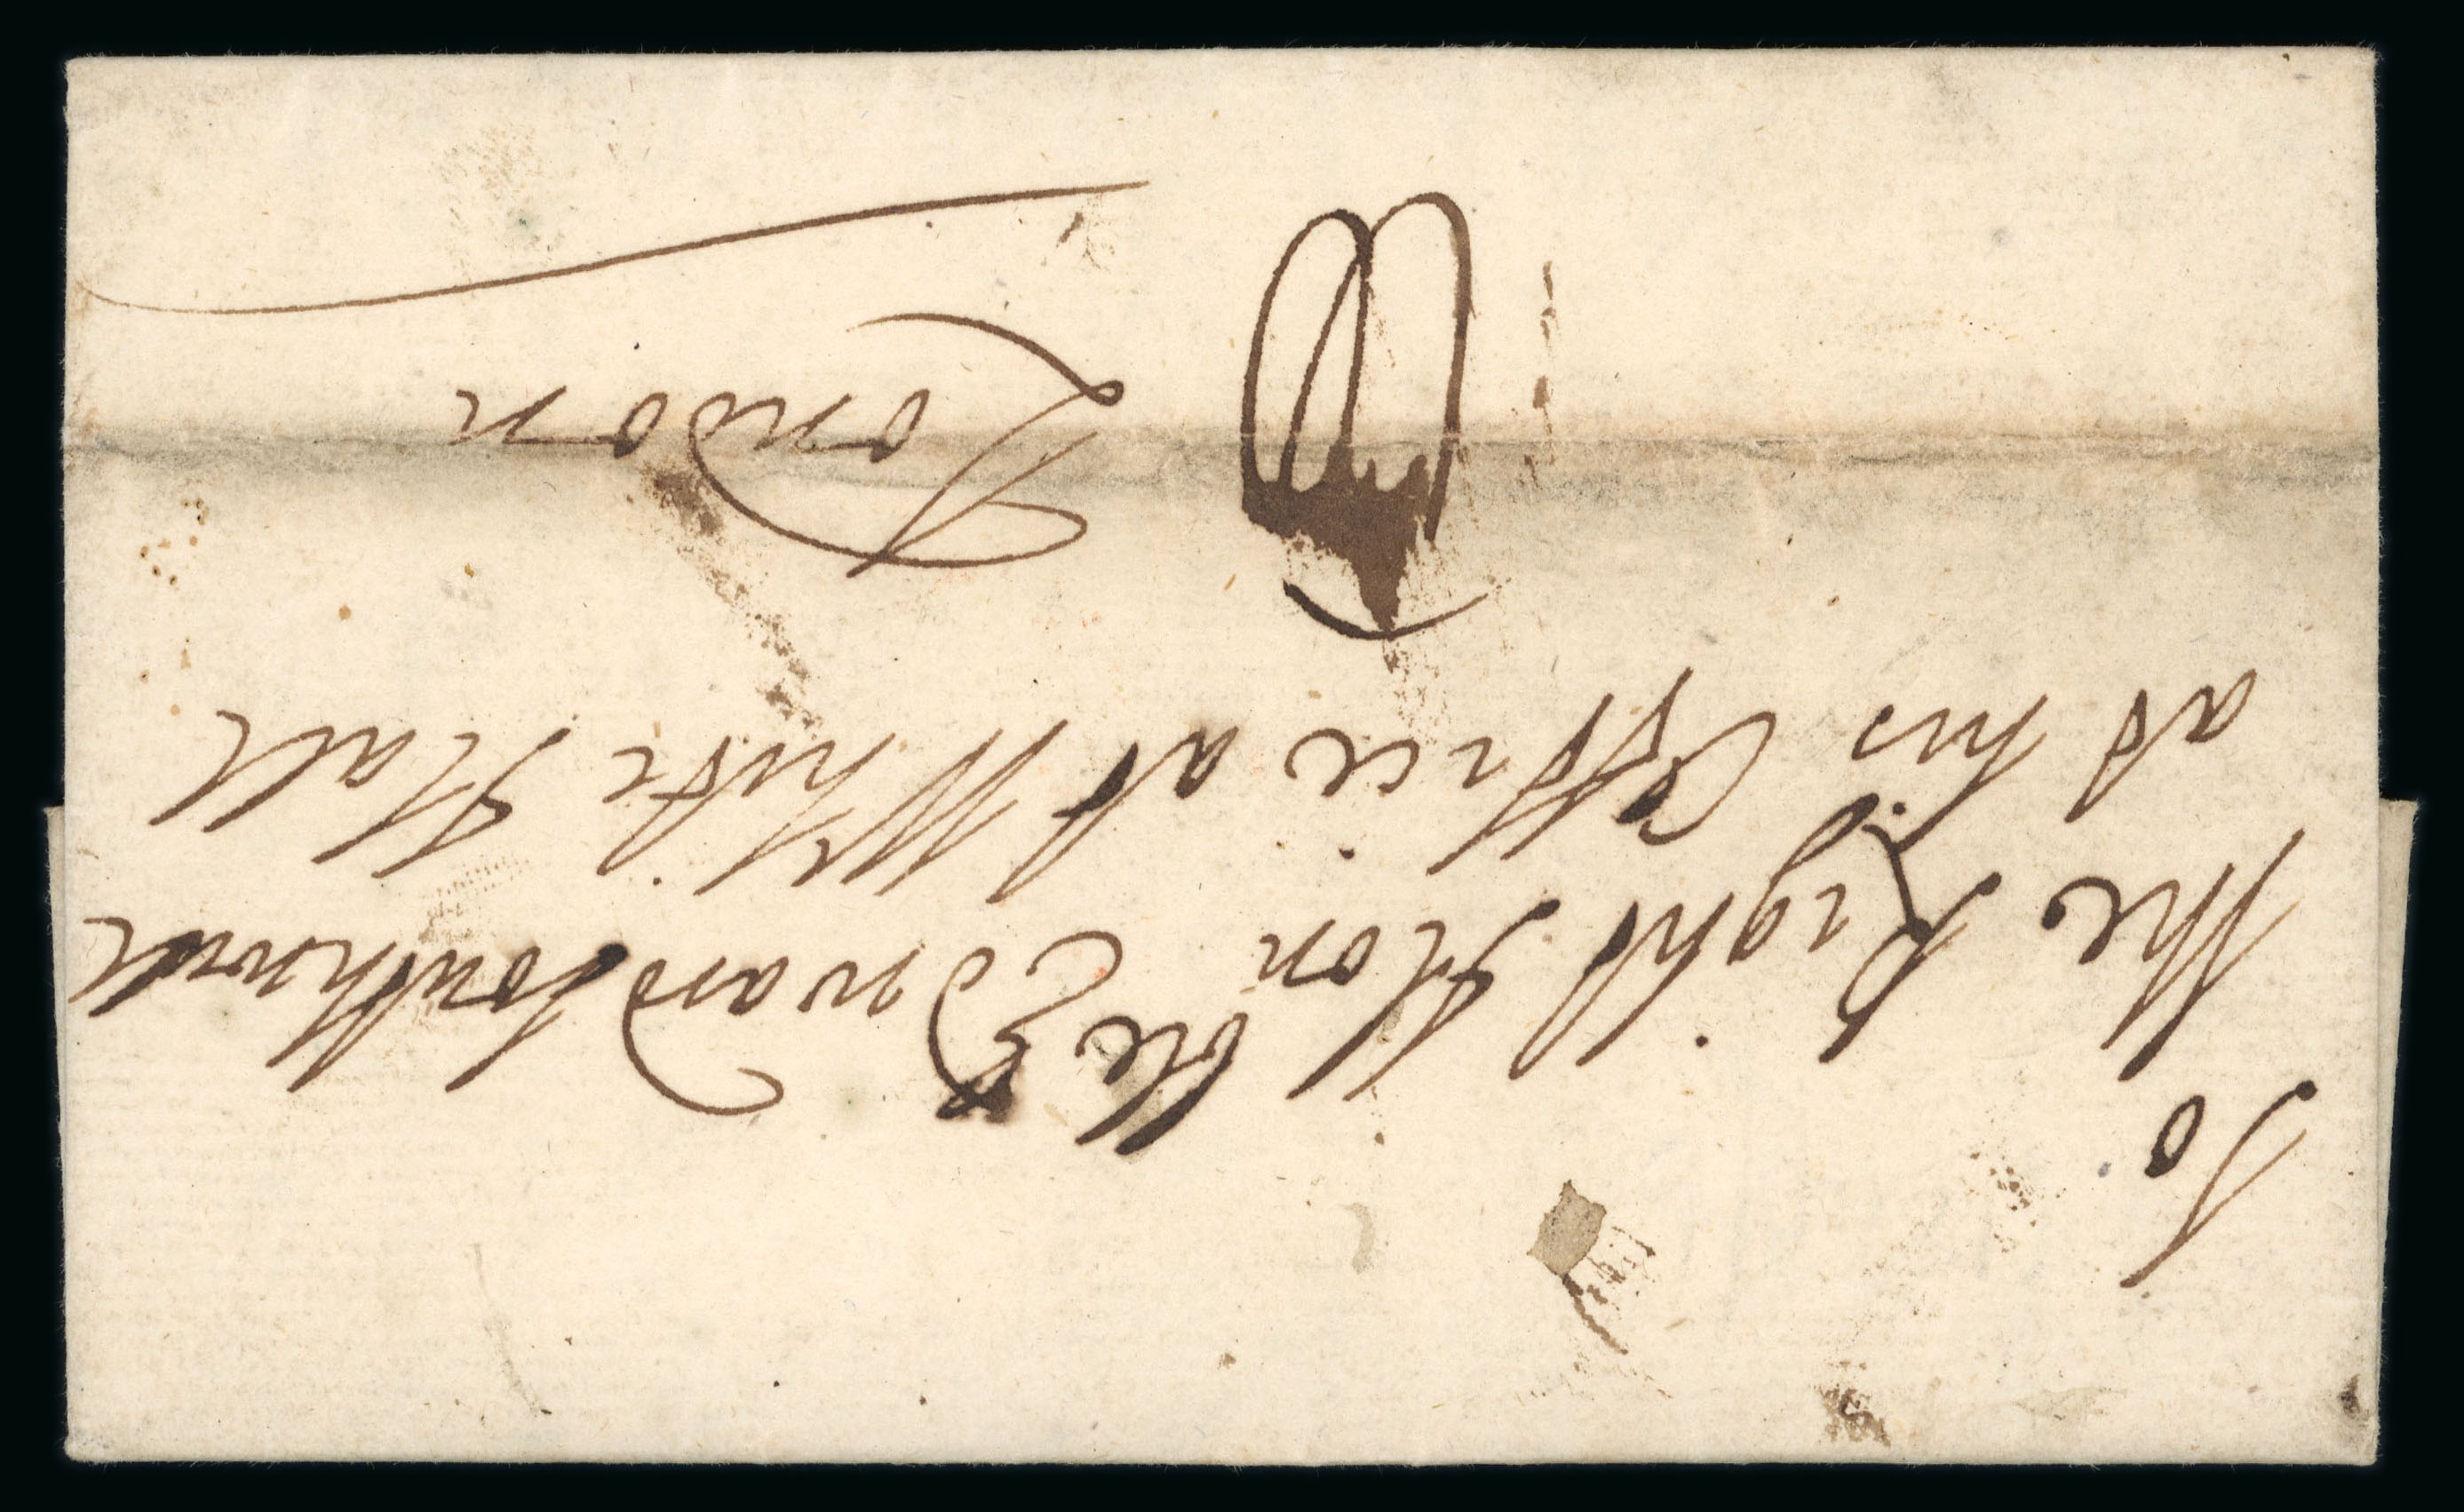 To
The Right Hon ble Edward Southwell
at his Office at White Hall
London